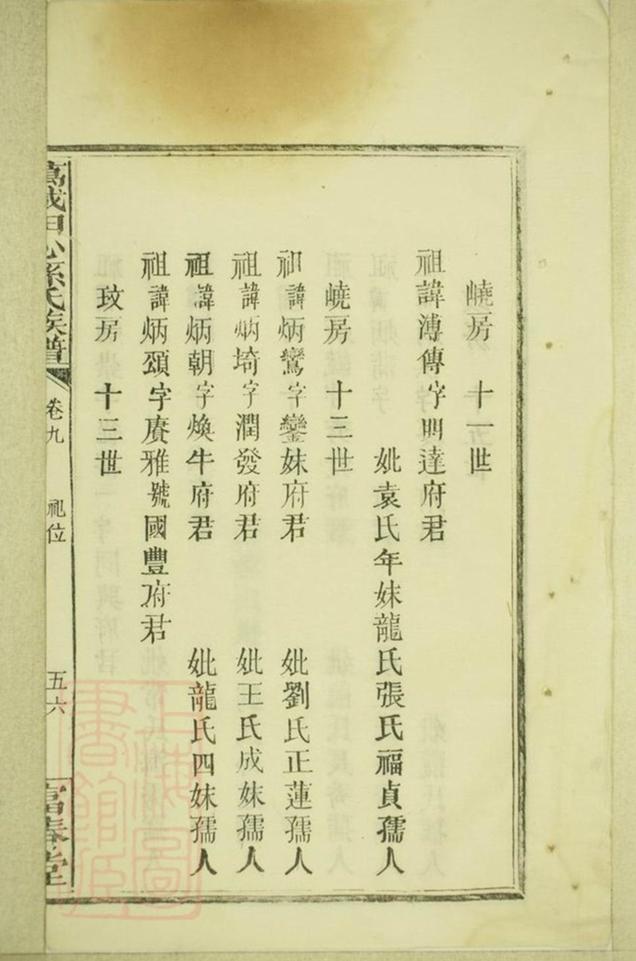 嶢房　十一世
祖諱溥傳字明達府君
妣袁氏年妹龍氏張氏福貞孺人
嶢房　十三世
祖諱炳鸞字鑾妹府君　妣劉氏正蓮孺人
祖諱炳埼字潤發府君　妣王氏成妹孺人
祖諱炳朝字煥牛府君　妣龍氏四妹孺人
祖諱炳頌字賡雅號國豐府君
玟房　十三世
萬載田心孫氏族譜　卷九　祀位　五六　富春堂
上海圖書館藏